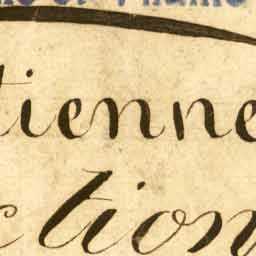 tienne
ction